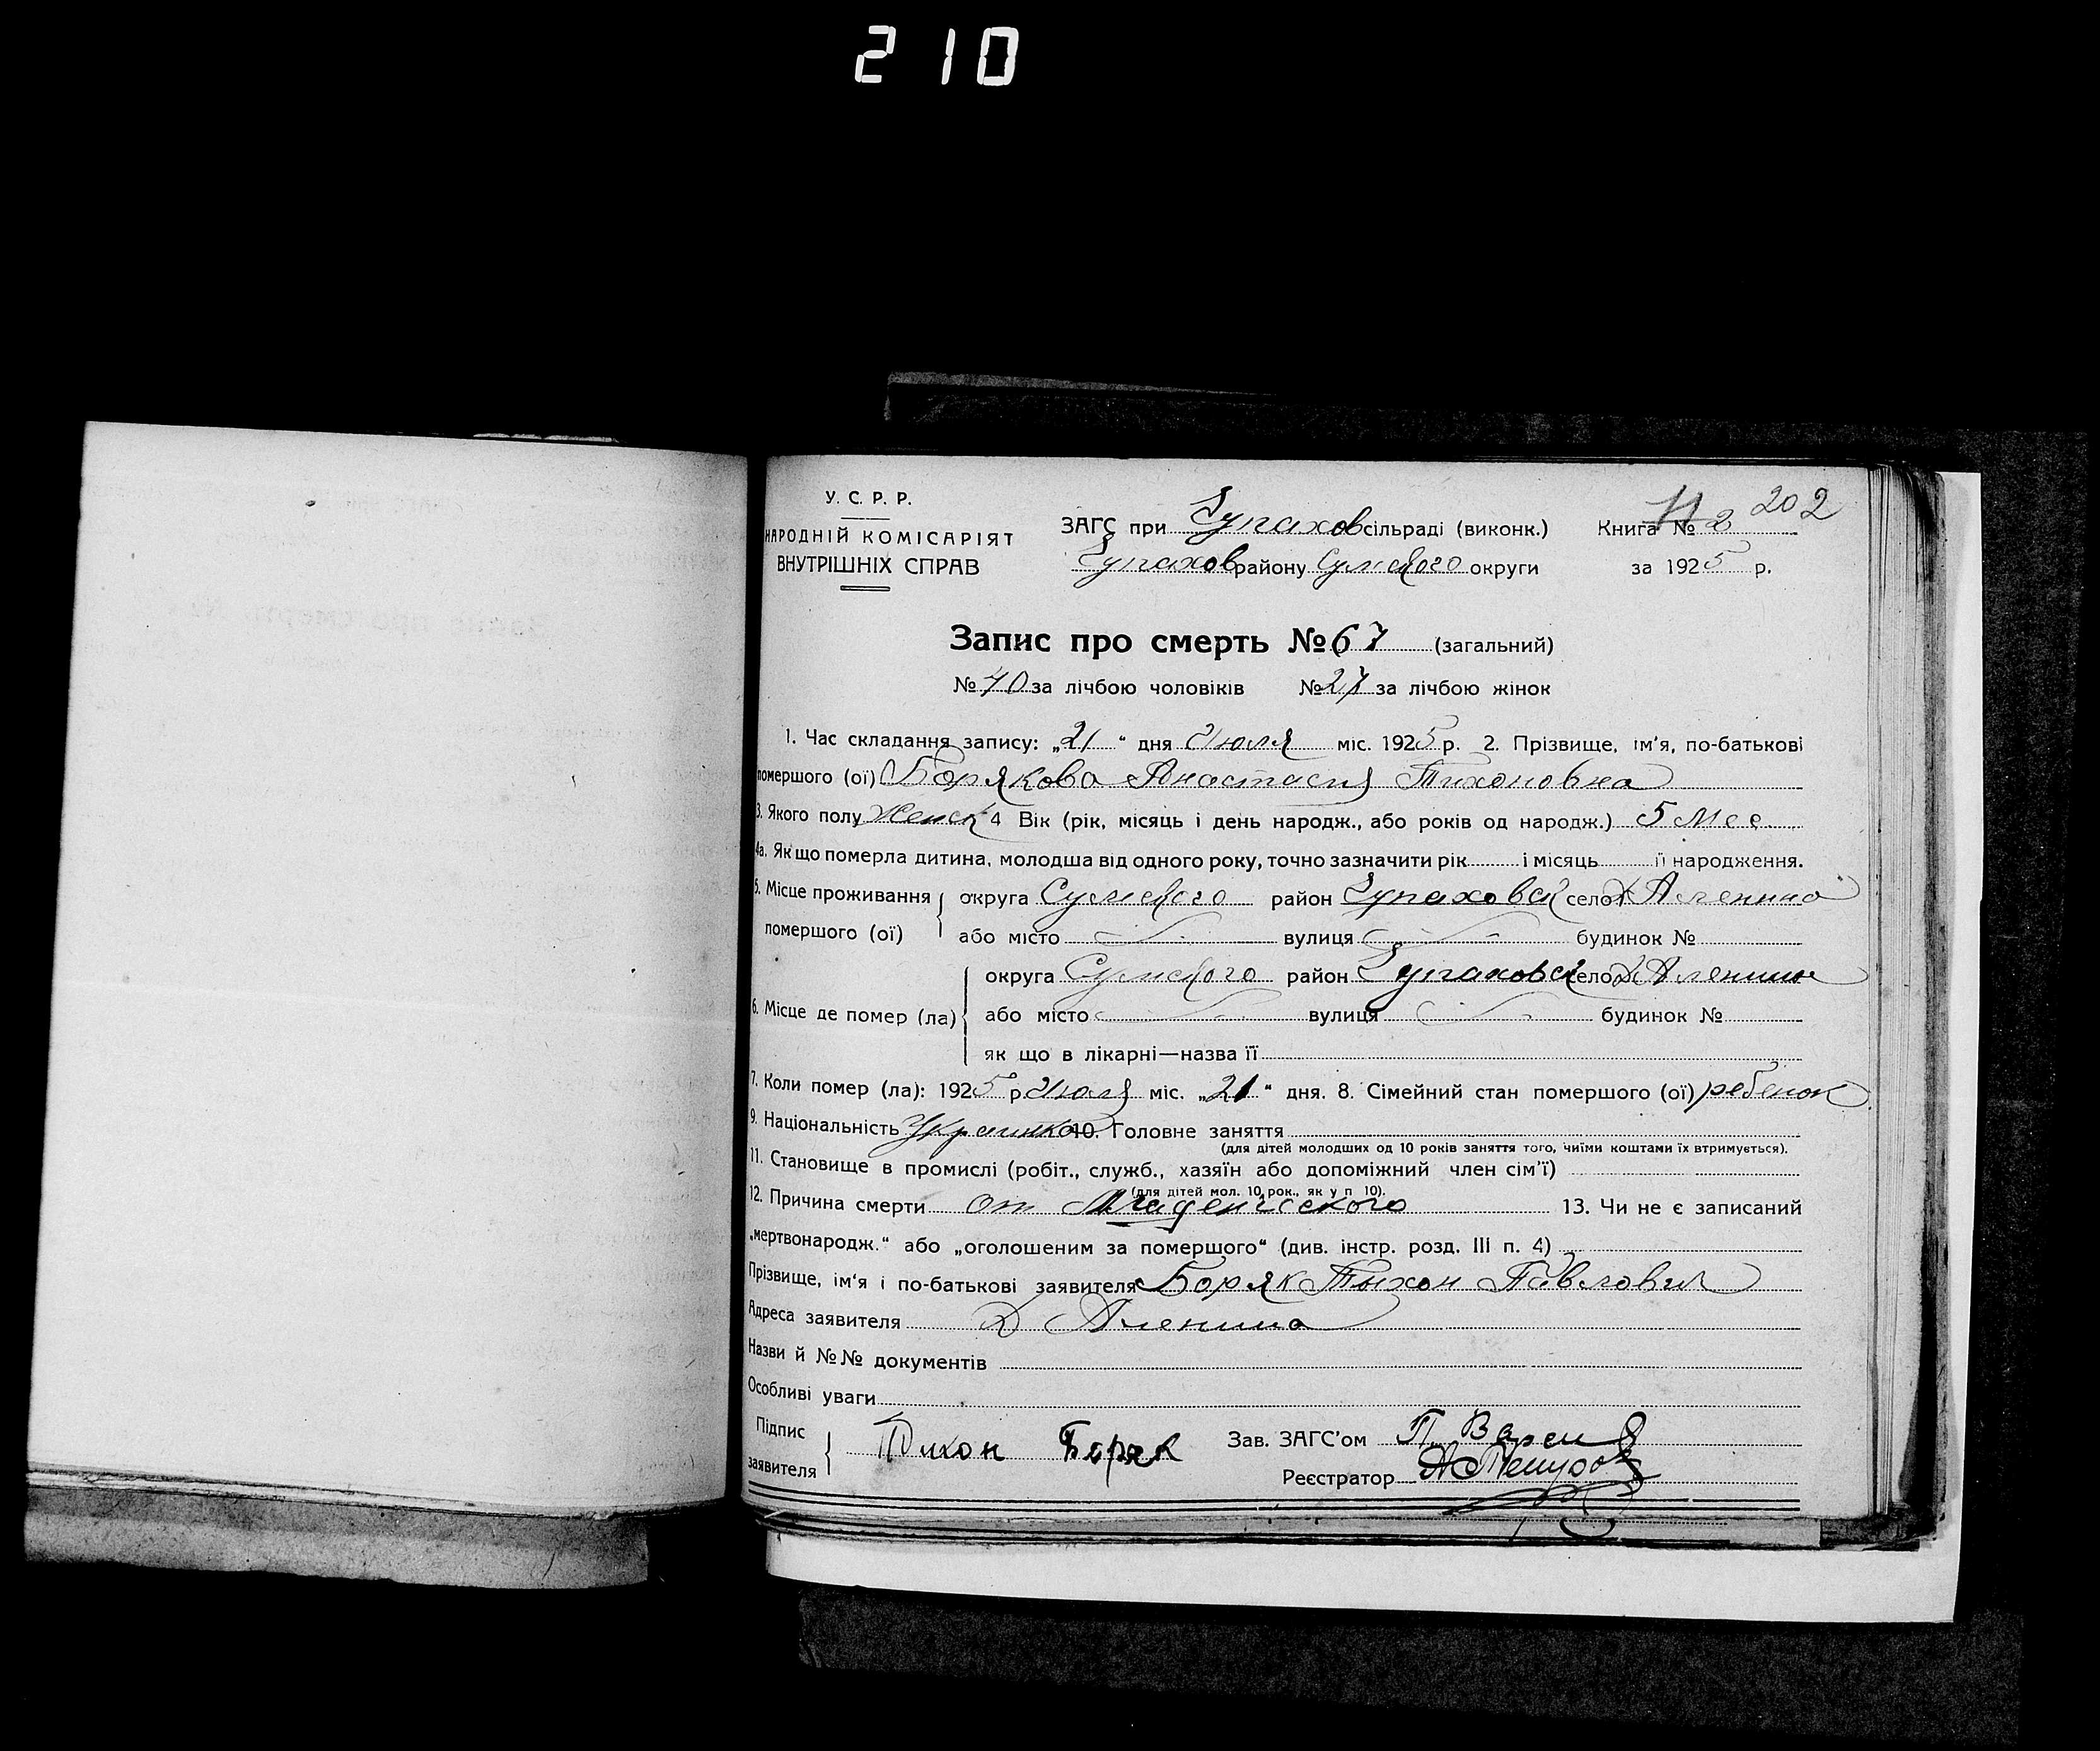 210
У. С. Р. Р.
НАРОДНІЙ КОМІСАРІЯТ
ВНУТРІШНІХ СПРАВ
ЗАГС при Чупахов сільраді (виконк.)
Чупахов району Сумского округи
Книга № 2 202
за 1925 р.
Запис про смерть № 67 (загальний)
№ 40 за лічбою чоловіків № 27 за лічбою жінок
1. Час складання запису: „21“ дня Июля міс. 1925 р. 2. Прізвище, ім'я, по-батькові
помершого (ої) Борякова Анастасия Тихоновна
3. Якого полу Женск 4 Вік (рік, місяць і день народж., або років од народж.) 5 мес.
4а. Як що померла дитина, молодша від одного року, точно зазначити рік і місяць її народження.
5. Місце проживання помершого (ої) округа Сумского район Чупаховск село Д Аленино
або місто вулиця будинок №
6. Місце де помер (ла) округа Сумского район Чупаховск село Д Аленино
або місто вулиця будинок №
як що в лікарні—назва її
7. Коли помер (ла): 1925 р Июля міс. „21“ дня. 8. Сімейний стан помершого (ої) ребенок
9. Національність Украинка 10. Головне заняття
(для дітей молодших од 10 років заняття того, чиїми коштами їх втримується).
11. Становище в промислі (робіт., служб., хазяїн або допоміжний член сім'ї)
(для дітей мол. 10 рок., як у п 10).
12. Причина смерти от Младенческого 13. Чи не є записаний
„мертвонародж.“ або „оголошеним за помершого“ (див. інстр. розд. III п. 4)
Прізвище, ім'я і по-батькові заявителя Боряк Тихон Павлович
Адреса заявителя Д Аленино
Назви й №№ документів
Особливі уваги
Підпис заявителя Тихон Боряк
Зав. ЗАГС'ом
Реєстратор